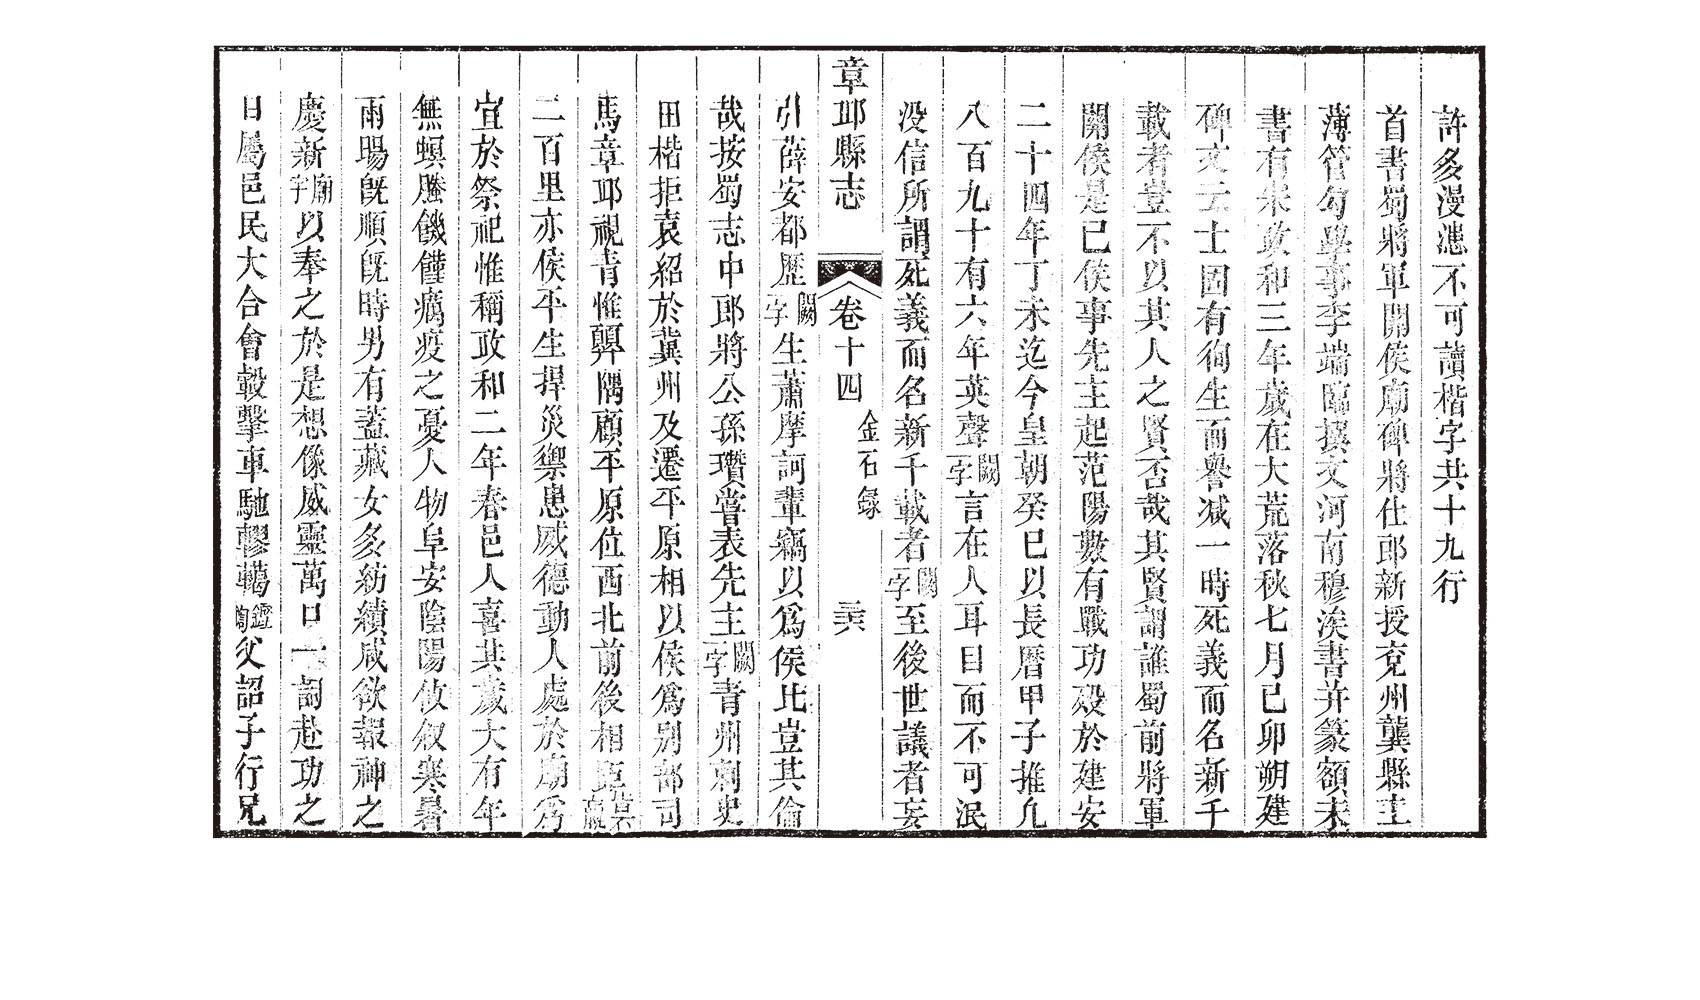 許多漫漶不可讀楷字共十九行
首書蜀將軍關侯廟碑將仕郎新授兗州龔縣主
薄管勾學事李端臨撰文河南穆涘書并篆額末
書有宋政和三年歲在大荒落秋七月己卯朔建
碑文云士固有徇生而譽减一時死義而名新千
載者豈不以其人之賢否哉其賢謂誰蜀前將軍
關侯是已侯事先主起范陽數有戰功歿於建安
二十四年丁未迄今皇朝癸巳以長曆甲子推凢
八百九十有六年英聲闕一字言在人耳目而不可泯
没信所謂死義而名新千載者闕一字至後世議者妄
章邱縣志 卷十四 金石録 三六
引薛安都歷闕一字生蕭摩訶輩竊以爲侯比豈其倫
哉按蜀志中郎將公孫瓚嘗表先主闕一字青州刺史
田楷拒袁紹於冀州及遷平原相以侯爲别部司
馬章邱視青惟嶭隅顧平原位西北前後相距莫贏
二百里亦侯平生捍災禦患威德動人處於廟爲
宜於祭祀惟稱政和二年春邑人喜其歲大有年
無螟螣饑饉癘疫之憂人物阜安陰陽攸叙寒暑
雨暘旣順旣時男有蓋藏女多紡績咸欲報神之
慶新廟字以奉之於是想像威靈萬口一詞赴功之
日屬邑民大合會轂擊車馳轇轕鏗鞫父詔子行兄